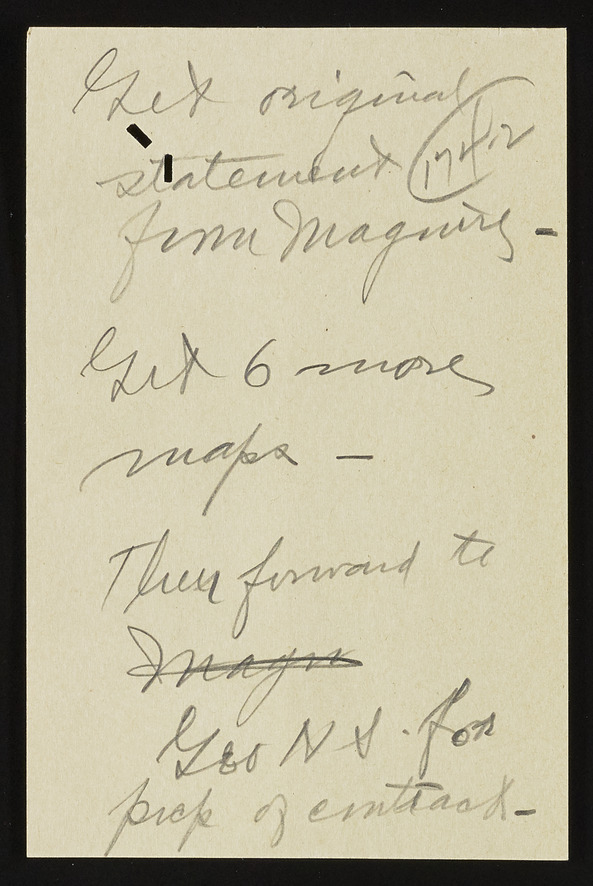 Get original
statement
from Maguire -
Get 6 more
maps -
Then forward to
Magu
Geo N S. for
prep of contract -